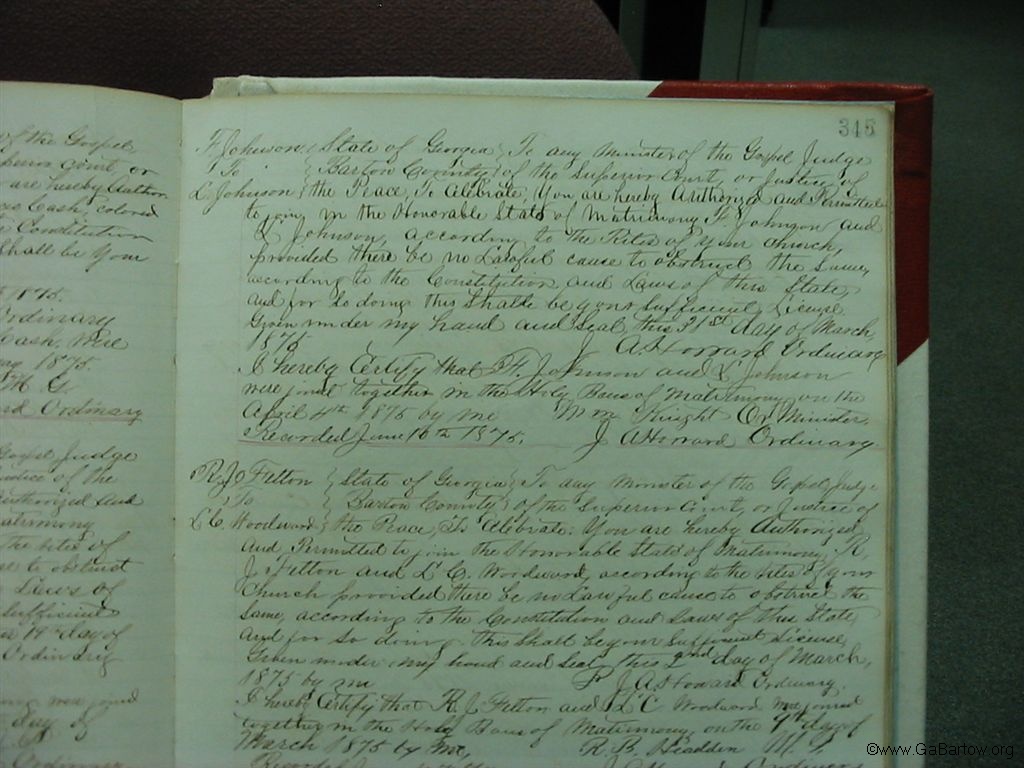 of the Gospel
Court or
are hereby Author
Cash, colored
Constitution
Shall be Your
1875.
Ordinary
Cash, were
1875.
M. G.
Ordinary
Gospel Judge
Justice of the
Authorized and
Matrimony
the Rites of
to obstruct
Laws of
Sufficient
19th day of
Ordinary
were joined
day of
345
F. Johnson { State of Georgia } To any Minister of the Gospel Judge
To { Bartow County } of the Superior Court, or Justice of
L. Johnson { the Peace, To Celebrate, You are hereby Authorized and Permitted
to join in the Honorable State of Matrimony F. Johnson and
L. Johnson, according to the Rites of your church,
provided there be no Lawful cause to obstruct the Same,
according to the Constitution and Laws of this State,
and for so doing this Shall be your Sufficient License.
Given under my hand and Seal this 31st day of March,
1875. J. A. Howard Ordinary
I hereby Certify that F. Johnson and L. Johnson
were joined together in the Holy Bans of Matrimony on the
April 4th 1875 by me Wm Knight Or. Minister
Recorded June 16th 1875. J A Howard Ordinary.
R. J. Felton { State of Georgia } To any Minister of the Gospel, Judge
To { Bartow County } of the Superior Court, or Justice of
L. C. Woodward { the Peace, To Celebrate: You are hereby Authorized
and Permitted to join the Honorable State of Matrimony, R.
J. Felton and L. C. Woodward, according to the Rites of your
Church provided there be no Lawful cause to obstruct the
Same, according to the Constitution and Laws of this State,
and for so doing this Shall be your Sufficient License,
Given under my hand and Seal, this 2nd day of March,
1875 by me J. A. Howard Ordinary.
I hereby Certify that R. J. Felton and L. C. Woodward were joined
together in the Holy Bans of Matrimony on the 9th day of
March 1875 by me, R. B. Headden M. G.
Recorded June
©www.GaBartow.org